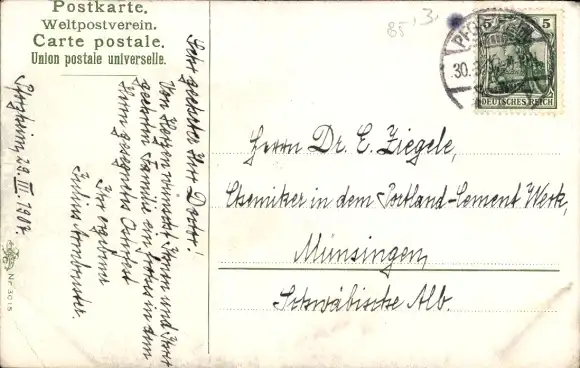 Postkarte.
Weltpostverein.
Carte postale.
Union postale universelle.
85
13.
PFORZHEIM
30.
5 5
DEUTSCHES REICH
Herrn Dr. E. Ziegele,
Chemiker in dem Portland-Cement Werk,
Münsingen,
Schwäbische Alb.
Pforzheim, 29. III. 1907.
Sehr geehrter Herr Doctor!
Von Herzen wünscht Ihnen und Ihrer
geehrten Familie ein frohes in dem
Herrn gesegnetes Osterfest
Ihr ergebener
Julius Armbruster.
Nr. 3015